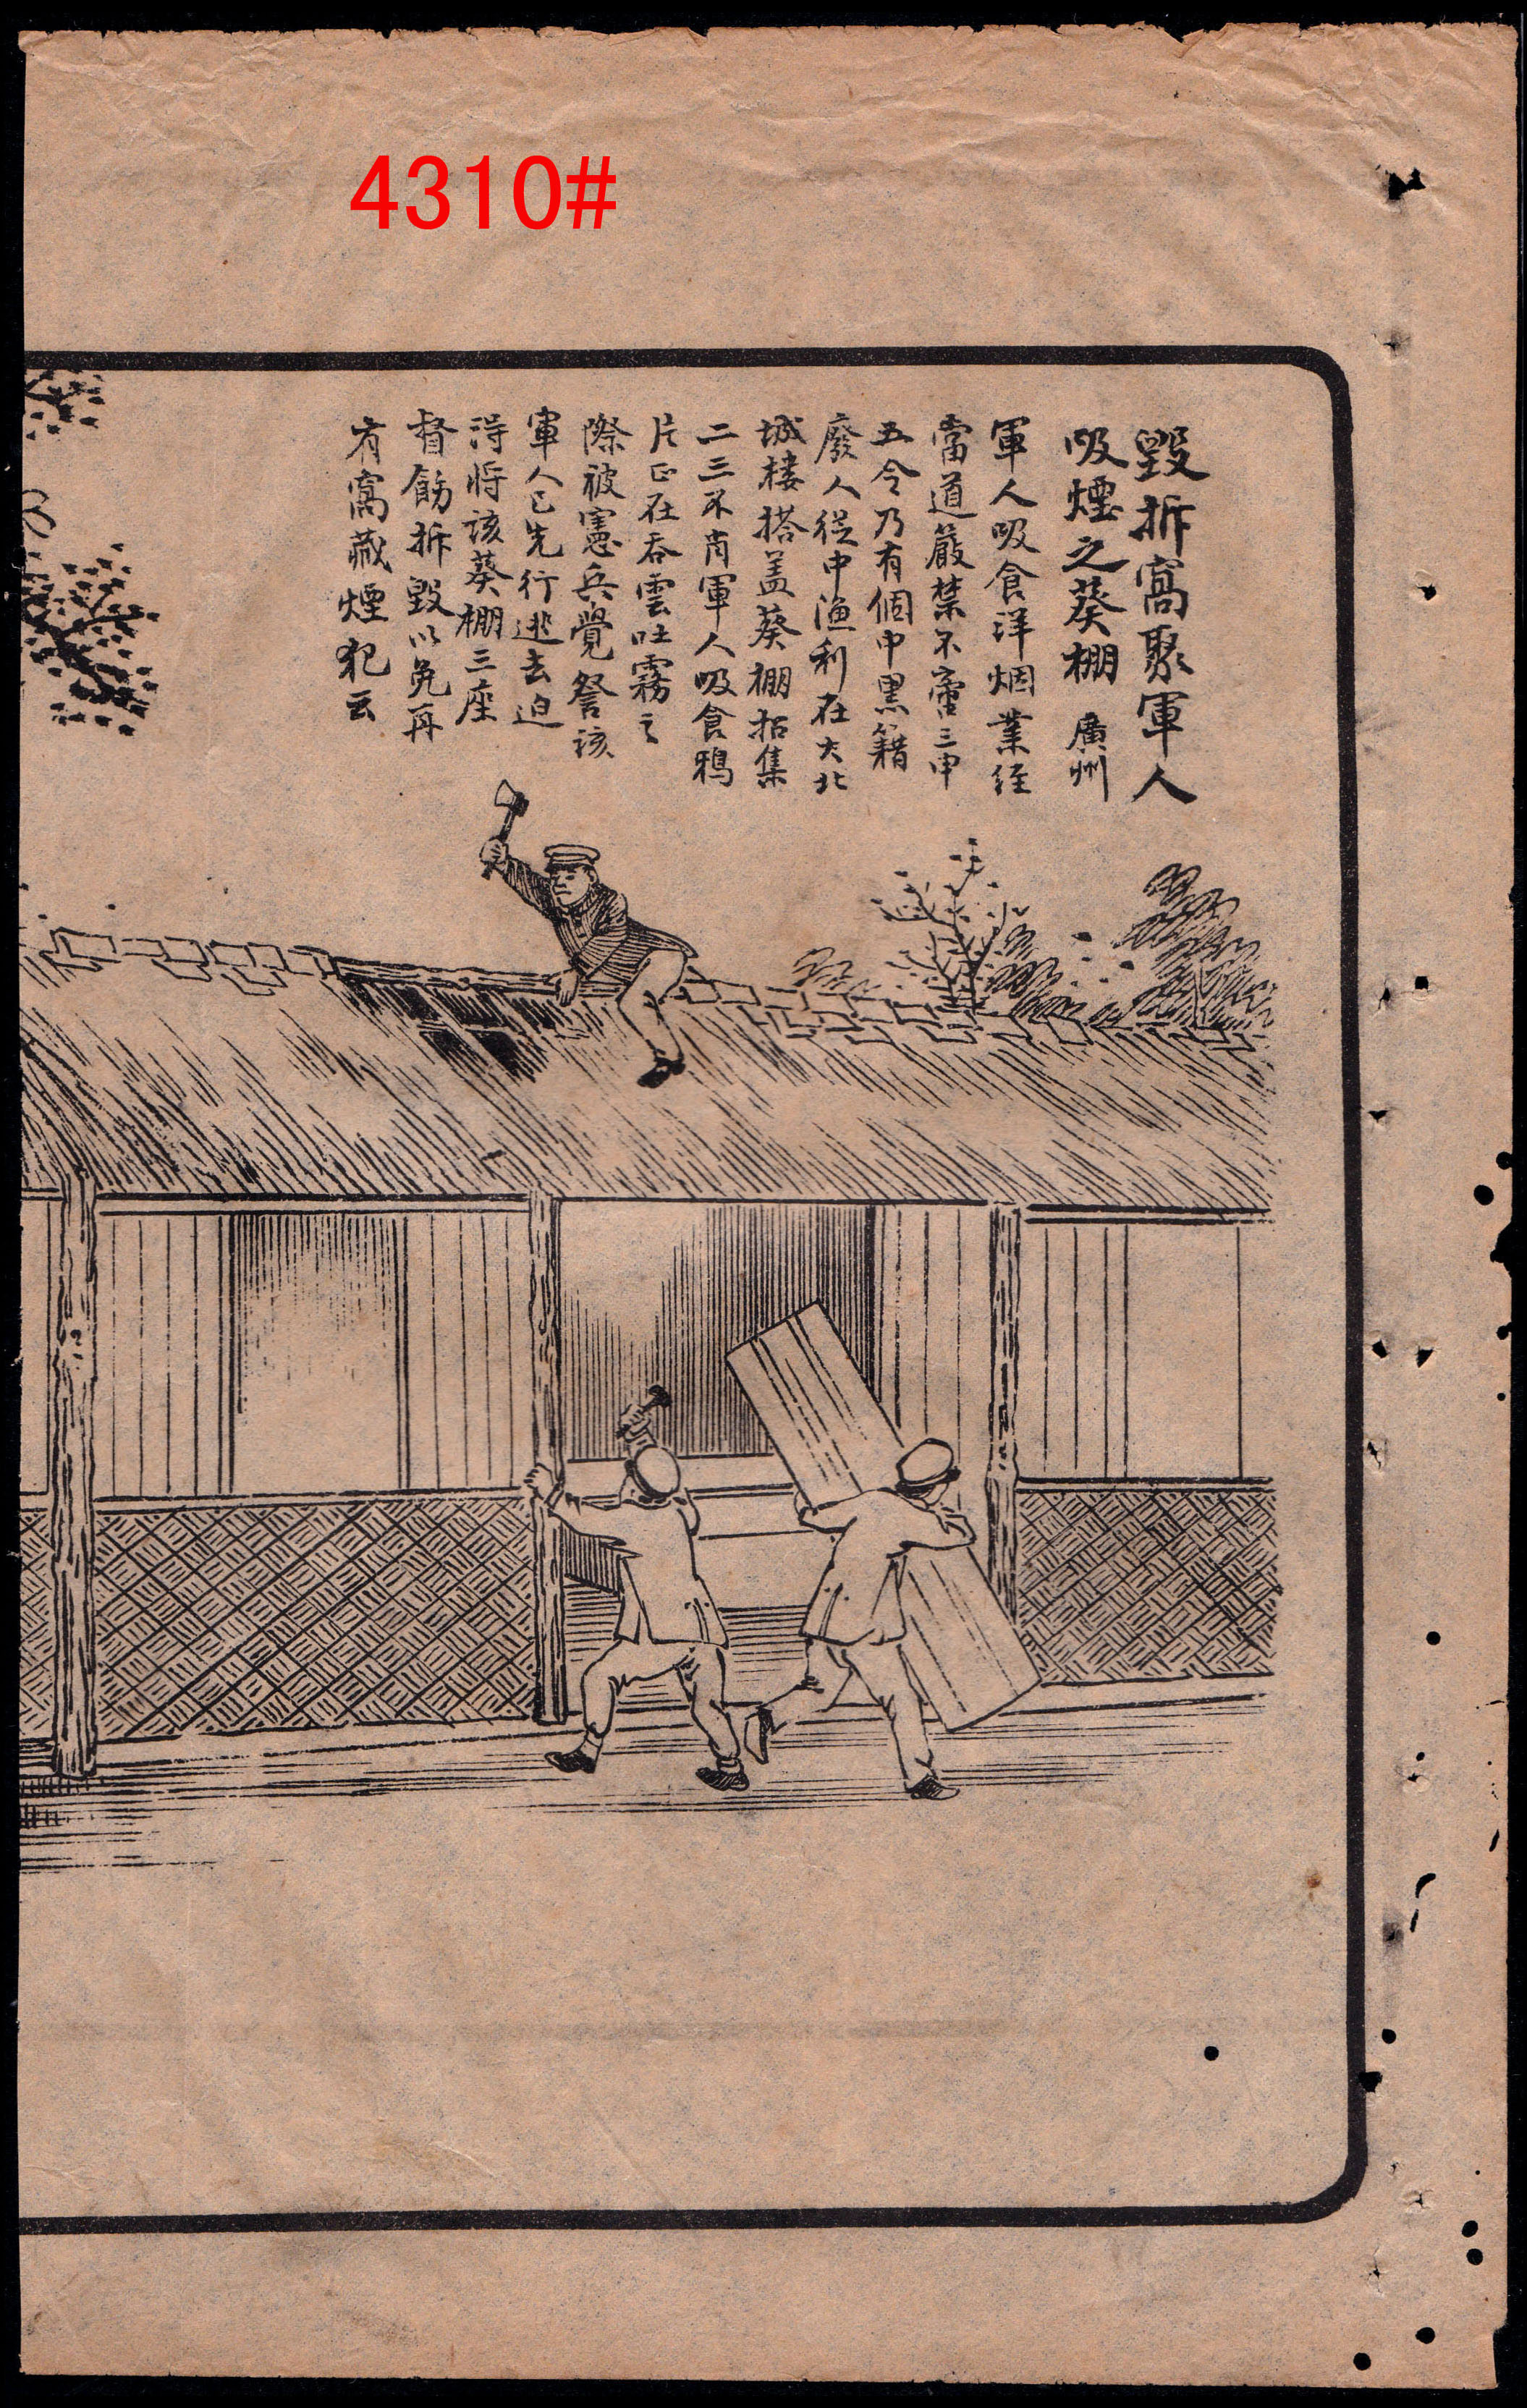 4310#
毀拆窩聚軍人
吸煙之葵棚 廣州
軍人吸食洋烟業經
當道嚴禁不啻三申
五令乃有個中黑籍
廢人從中漁利在大北
城楼搭盖葵棚招集
二三不肖軍人吸食鴉
片正在吞雲吐霧之
際被憲兵覺詧該
軍人已先行逃去迫
得将該葵棚三座
督飭拆毀以免再
有窩藏煙犯云